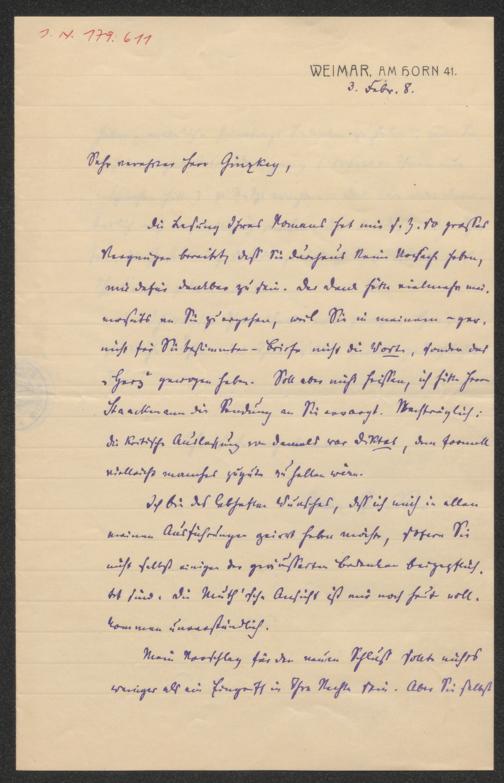 J. N. 179.611
WEIMAR, AM HORN 41.
3. Febr. 8.
Sehr verehrter Herr Ginzkey,
die Lesung Ihres Romans hat mir s. Z. so grosses
Vergnügen bereitet, dass Sie durchaus keine Ursache haben,
mir dafür dankbar zu sein. Der Dank hätte vielmehr mei-
nerseits an Sie zu ergehen, weil Sie in meinem – gar
nicht für Sie bestimmten – Briefe nicht die Worte, sondern das
„Herz" gewogen haben. Soll aber nicht heissen, ich hätte Herrn
Staackmann die Sendung an Sie verargt. Nachträglich:
die kritische Auslassung von damals war Diktat, dem formell
vielleicht manches zugute zu halten wäre.
Ich bin des lebhaften Wunsches, dass ich mich in allen
meinen Ausführungen geirrt haben möchte, sofern Sie
nicht selbst einigen der geäusserten Bedenken beigepflich-
tet sind. Die Muth'sche Ansicht ist mir noch heut voll-
kommen unverständlich.
Mein Vorschlag für den neuen Schluss sollte nichts
weniger als ein Eingriff in Ihre Rechte sein. Aber Sie selbst